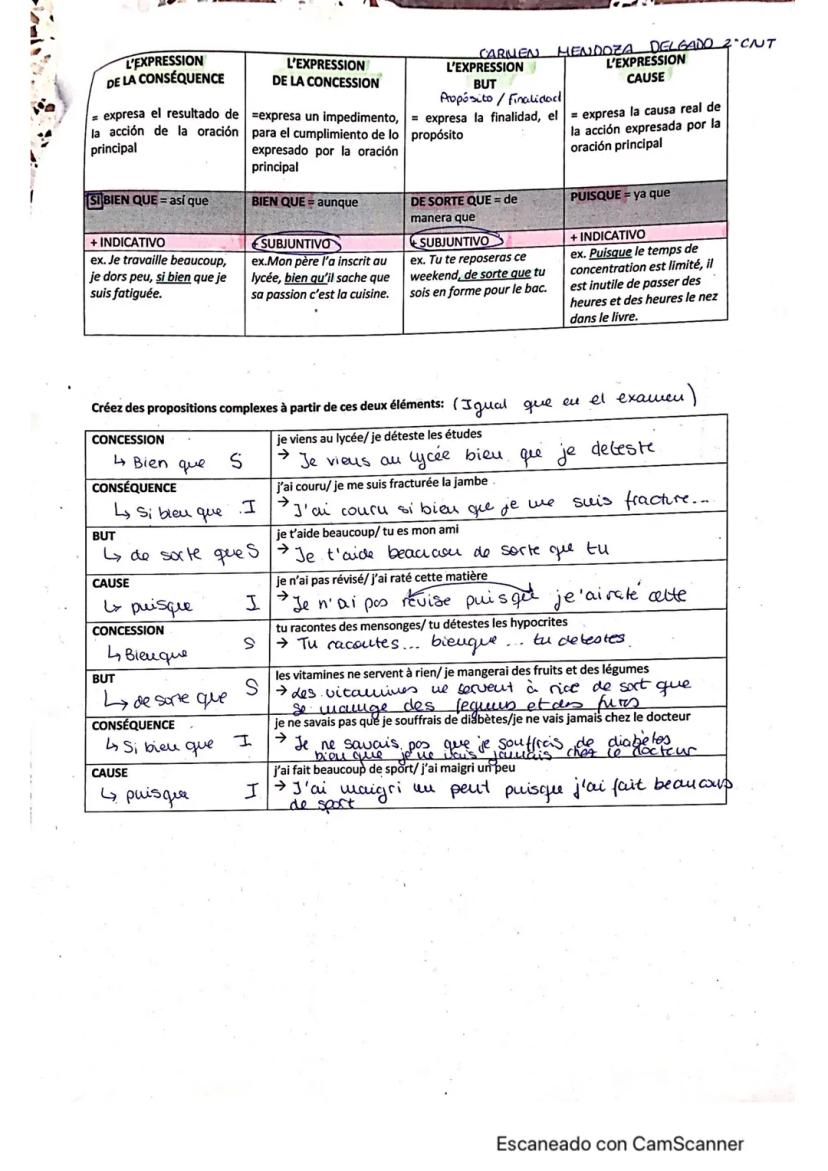 CARMEN MENDOZA DELGADO 2ºCNT
L'EXPRESSION
DE LA CONSÉQUENCE
= expresa el resultado de
la acción de la oración
principal
L'EXPRESSION
DE LA CONCESSION
=expresa un impedimento,
para el cumplimiento de lo
expresado por la oración
principal
L'EXPRESSION
BUT
Propósito / Finalidad
= expresa la finalidad, el
propósito
L'EXPRESSION
CAUSE
= expresa la causa real de
la acción expresada por la
oración principal
SI BIEN QUE = así que
BIEN QUE = aunque
DE SORTE QUE = de
manera que
PUISQUE = ya que
+ INDICATIVO
+ SUBJUNTIVO
+ SUBJUNTIVO
+ INDICATIVO
ex. Je travaille beaucoup,
je dors peu, si bien que je
suis fatiguée.
ex.Mon père l'a inscrit au
lycée, bien qu'il sache que
sa passion c'est la cuisine.
ex. Tu te reposeras ce
weekend, de sorte que tu
sois en forme pour le bac.
ex. Puisque le temps de
concentration est limité, il
est inutile de passer des
heures et des heures le nez
dans le livre.
Créez des propositions complexes à partir de ces deux éléments: (Igual que en el examen)
CONCESSION
↳ Bien que S
je viens au lycée/ je déteste les études
→ Je viens au lycée bien que je deteste
CONSÉQUENCE
↳ Si bien que I
j'ai couru/ je me suis fracturée la jambe
→ J'ai couru si bien que je me suis fracture...
BUT
↳ de sorte que S
je t'aide beaucoup/ tu es mon ami
→ Je t'aide beaucou de sorte que tu
CAUSE
↳ puisque I
je n'ai pas révisé/ j'ai raté cette matière
→ Je n'ai pas révise puisque je'ai raté cette
CONCESSION
↳ Bienque S
tu racontes des mensonges/ tu détestes les hypocrites
→ Tu racoutes... bienque ... tu detestes
BUT
↳ de sorte que S
les vitamines ne servent à rien/ je mangerai des fruits et des légumes
→ des vitamines ne servent à rice de sort que
se mange des legums et des
CONSÉQUENCE
↳ Si bien que I
je ne savais pas que je souffrais de diabètes/je ne vais jamais chez le docteur
→ Je ne savais pas que je souffris de diabètes
bien que je ne vais jamais chez le docteur
CAUSE
↳ puisque I
j'ai fait beaucoup de sport/ j'ai maigri un peu
→ J'ai maigri un peut puisque j'ai fait beaucoup
de sport
Escaneado con CamScanner